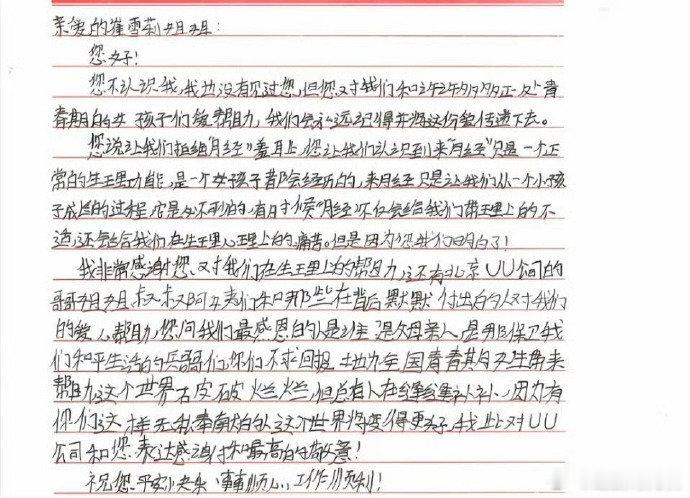 亲爱的崔雪莉姐姐：
您好！
您不认识我，我也没有见过您，但您对我们和许许多多正处青
春期的女孩子们给帮助，我们会永远记得并将这份爱传递下去。
您说让我们拒绝“月经”羞耻，您让我们认识到来“月经”只是一个正
常的生理功能，是一个女孩子都会经历的，来月经只是让我们从一个小孩
子成的过程，它是必不可怕的，有时候“月经”不仅会给我们带理上的不
适，还会给我们在生理心理上的痛苦。但是因为您我们明白了！
我非常感谢您，对我们在生理上的帮助，还有北京UU公司的
哥哥姐姐、叔叔阿姨们和那些在背后默默付出的人对我们
的爱心帮助，您问我们最感恩的人是谁？是父母亲人，是那保卫我
们和平生活的兵哥们，你们不求回报地为全国青春期卫生带来
帮助，这个世界破破烂烂，但总有人在缝缝补补，因为有
你们这样无私奉献的人这个世界将变得更好，我此对UU
公司和您表达感谢和最高的敬意！
祝您平安快乐 事事顺心，工作顺利！